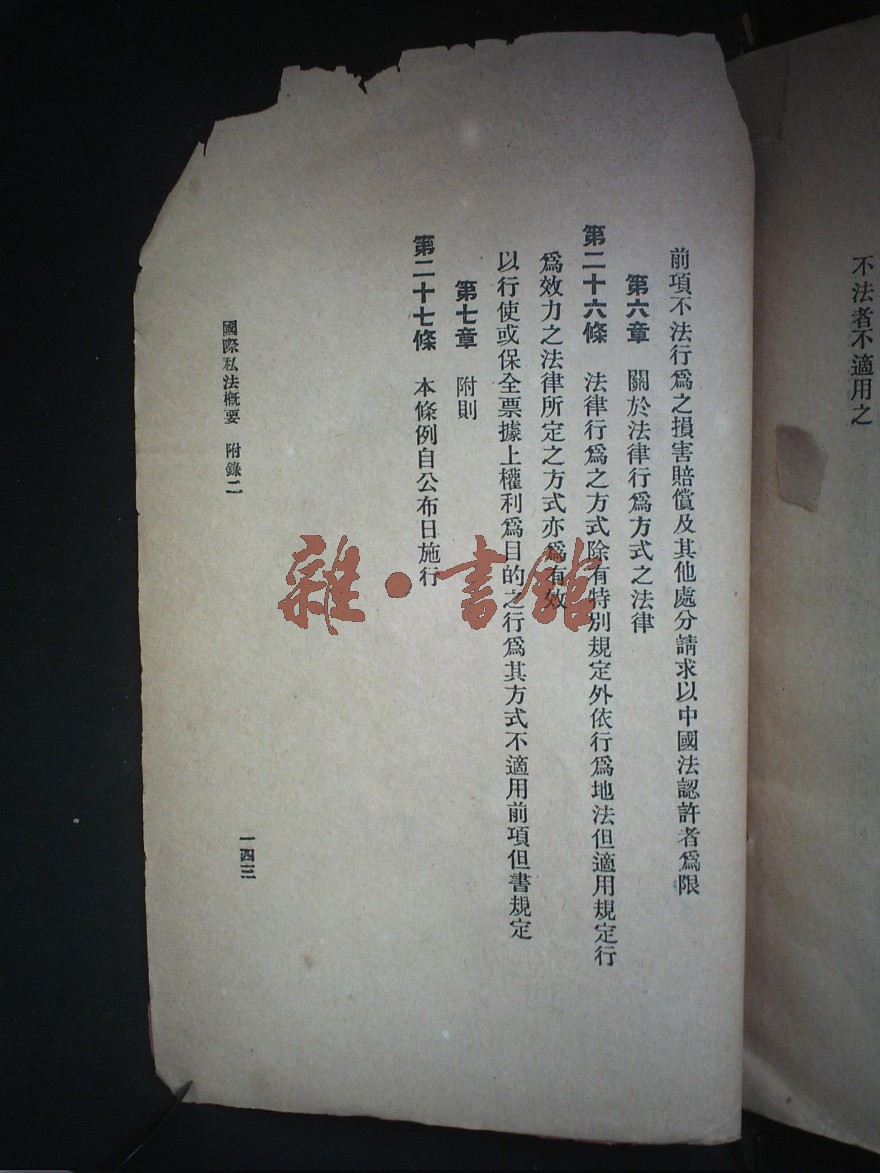 不法者不適用之
前項不法行爲之損害賠償及其他處分請求以中國法認許者爲限
第六章　關於法律行爲方式之法律
第二十六條　法律行爲之方式除有特別規定外依行爲地法但適用規定行
爲效力之法律所定之方式亦爲有效
以行使或保全票據上權利爲目的之行爲其方式不適用前項但書規定
第七章　附則
第二十七條　本條例自公布日施行
國際私法概要　附錄二
一四三
雜·書館